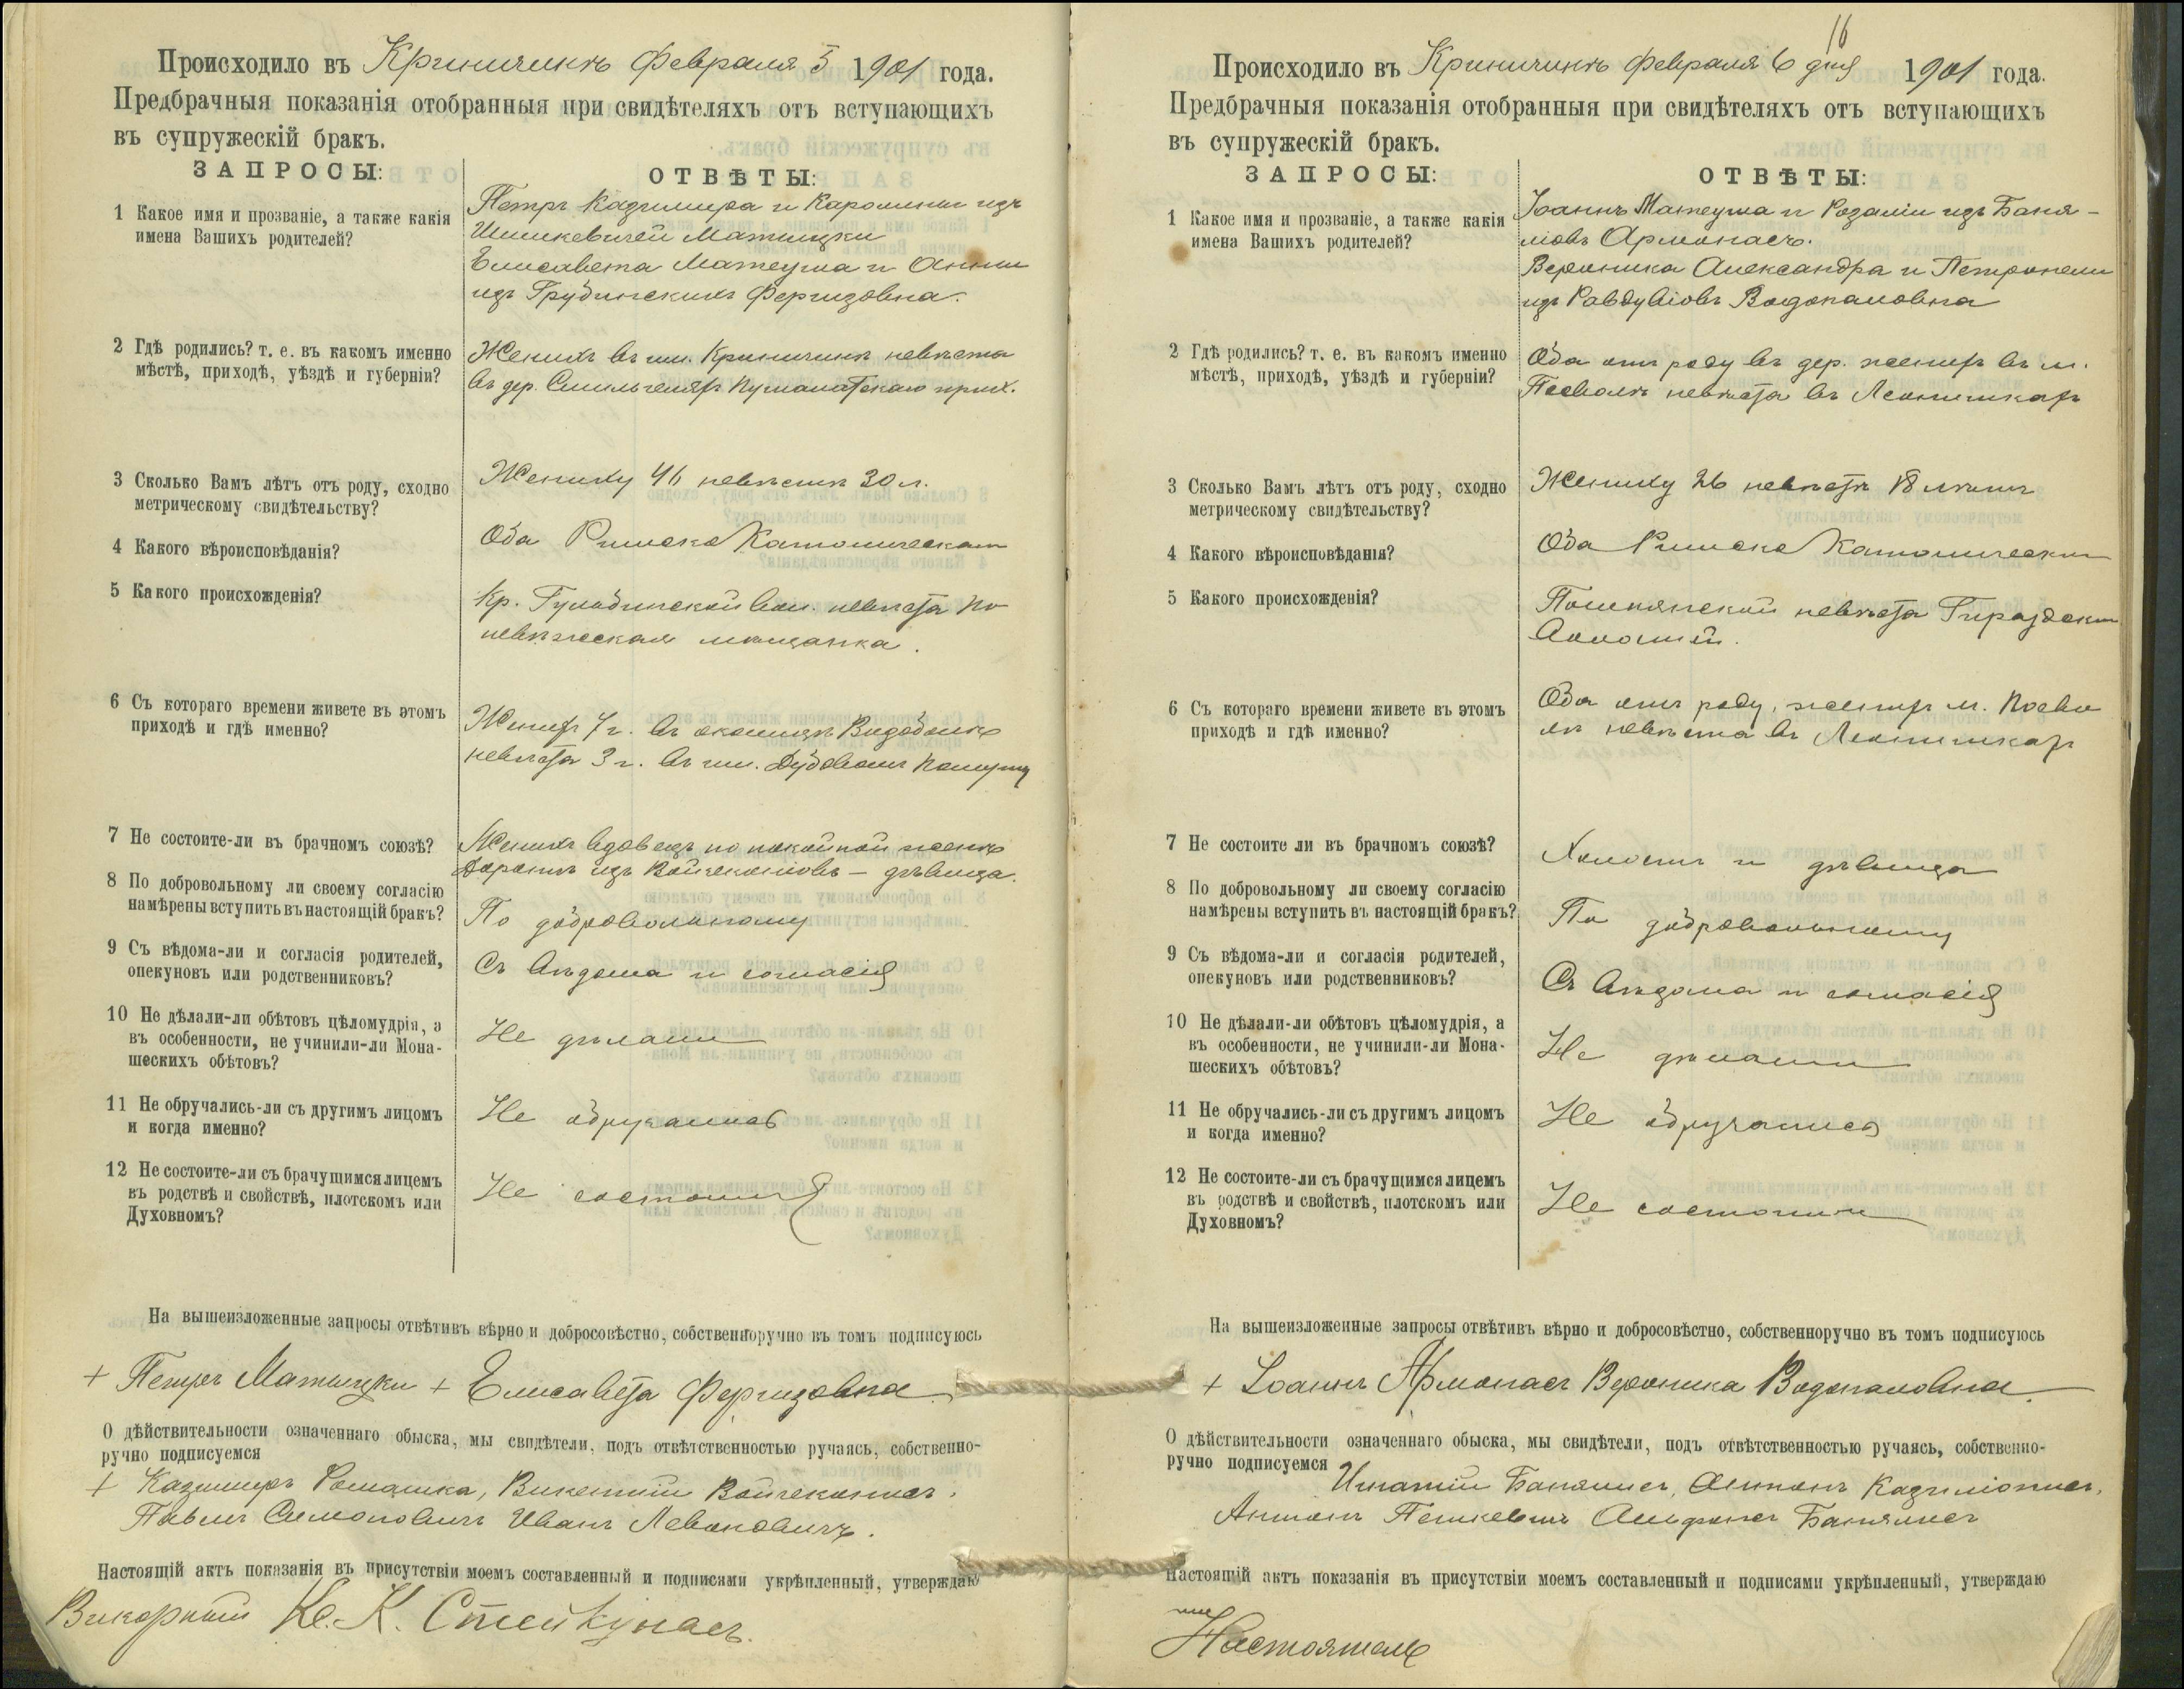 Происходило въ Криничинѣ Февраля 5 1901 года.
Предбрачныя показанія отобранныя при свидѣтеляхъ отъ вступающихъ
въ супружескій бракъ.
ЗАПРОСЫ:
ОТВѢТЫ:
1 Какое имя и прозваніе, а также какія
имена Вашихъ родителей?
Петръ Казимира и Каролины изъ
Матыцки
Елисавета Матеуша и Анны
изъ Грудинскихъ Фергизовна.
2 Гдѣ родились? т. е. въ какомъ именно
мѣстѣ, приходѣ, уѣздѣ и губерніи?
Женихъ въ им. Криничинѣ невѣста
въ дер. прих.
3 Сколько Вамъ лѣтъ отъ роду, сходно
метрическому свидѣтельству?
Жениху 46 невѣстѣ 30 л.
4 Какого вѣроисповѣданія?
Оба Римско Католическаго
5 Какого происхожденія?
Кр. вол. невѣста По
невѣжская мѣщанка.
6 Съ котораго времени живете въ этомъ
приходѣ и гдѣ именно?
Женихъ 7 г. въ околицѣ
невѣста 3 г. въ им.
7 Не состоите-ли въ брачномъ союзѣ?
Женихъ вдовецъ по покойной женѣ
изъ — дѣвица.
8 По добровольному ли своему согласію
намѣрены вступить въ настоящій бракъ?
По добровольному
9 Съ вѣдома-ли и согласія родителей,
опекуновъ или родственниковъ?
Съ вѣдома и согласія
10 Не дѣлали-ли обѣтовъ цѣломудрія, а
въ особенности, не учинили-ли Мона-
шескихъ обѣтовъ?
Не дѣлали
11 Не обручались-ли съ другимъ лицомъ
и когда именно?
Не обручались
12 Не состоите-ли съ брачущимся лицемъ
въ родствѣ и свойствѣ, плотскомъ или
Духовномъ?
Не
На вышеизложенные запросы отвѣтивъ вѣрно и добросовѣстно, собственноручно въ томъ подписуюсь
+ Петръ Матыцки + Елисавета Фергизовна
О дѣйствительности означеннаго обыска, мы свидѣтели, подъ отвѣтственностью ручаясь, собственно-
ручно подписуемся
+ Казимиръ Ромашка, Викентій
Павелъ Симоновичъ Иванъ Левоновичъ.
Настоящій актъ показанія въ присутствіи моемъ составленный и подписями укрѣпленный, утверждаю
Викарный Кс. К. Стейкунасъ.
16
Происходило въ Криничинѣ Февраля 6 дня 1901 года.
Предбрачныя показанія отобранныя при свидѣтеляхъ отъ вступающихъ
въ супружескій бракъ.
ЗАПРОСЫ:
ОТВѢТЫ:
1 Какое имя и прозваніе, а также какія
имена Вашихъ родителей?
Іоаннъ Матеуша и Розаліи изъ Баня-
Армонасъ.
Вероника Александра и Петронели
изъ Водопаловна
2 Гдѣ родились? т. е. въ какомъ именно
мѣстѣ, приходѣ, уѣздѣ и губерніи?
Оба отъ роду въ дер. женихъ въ м.
невѣста въ
3 Сколько Вамъ лѣтъ отъ роду, сходно
метрическому свидѣтельству?
Жениху 26 невѣстѣ 18 лѣтъ
4 Какого вѣроисповѣданія?
Оба Римско Католическаго
5 Какого происхожденія?
невѣста
6 Съ котораго времени живете въ этомъ
приходѣ и гдѣ именно?
Оба отъ роду, женихъ м.
невѣста въ
7 Не состоите ли въ брачномъ союзѣ?
Холостъ и дѣвица
8 По добровольному ли своему согласію
намѣрены вступить въ настоящій бракъ?
По добровольному
9 Съ вѣдома-ли и согласія родителей,
опекуновъ или родственниковъ?
Съ вѣдома и согласія
10 Не дѣлали-ли обѣтовъ цѣломудрія, а
въ особенности, не учинили-ли Мона-
шескихъ обѣтовъ?
Не дѣлали
11 Не обручались-ли съ другимъ лицомъ
и когда именно?
Не обручались
12 Не состоите-ли съ брачущимся лицемъ
въ родствѣ и свойствѣ, плотскомъ или
Духовномъ?
Не состоимъ
На вышеизложенные запросы отвѣтивъ вѣрно и добросовѣстно, собственноручно въ томъ подписуюсь
+ Іоаннъ Армонасъ Вероника Водопаловна
О дѣйствительности означеннаго обыска, мы свидѣтели, подъ отвѣтственностью ручаясь, собственно-
ручно подписуемся
Игнатій Банялисъ, Антонъ
Антонъ Петкевичъ Банялисъ
Настоящій актъ показанія въ присутствіи моемъ составленный и подписями укрѣпленный, утверждаю
Настоятель